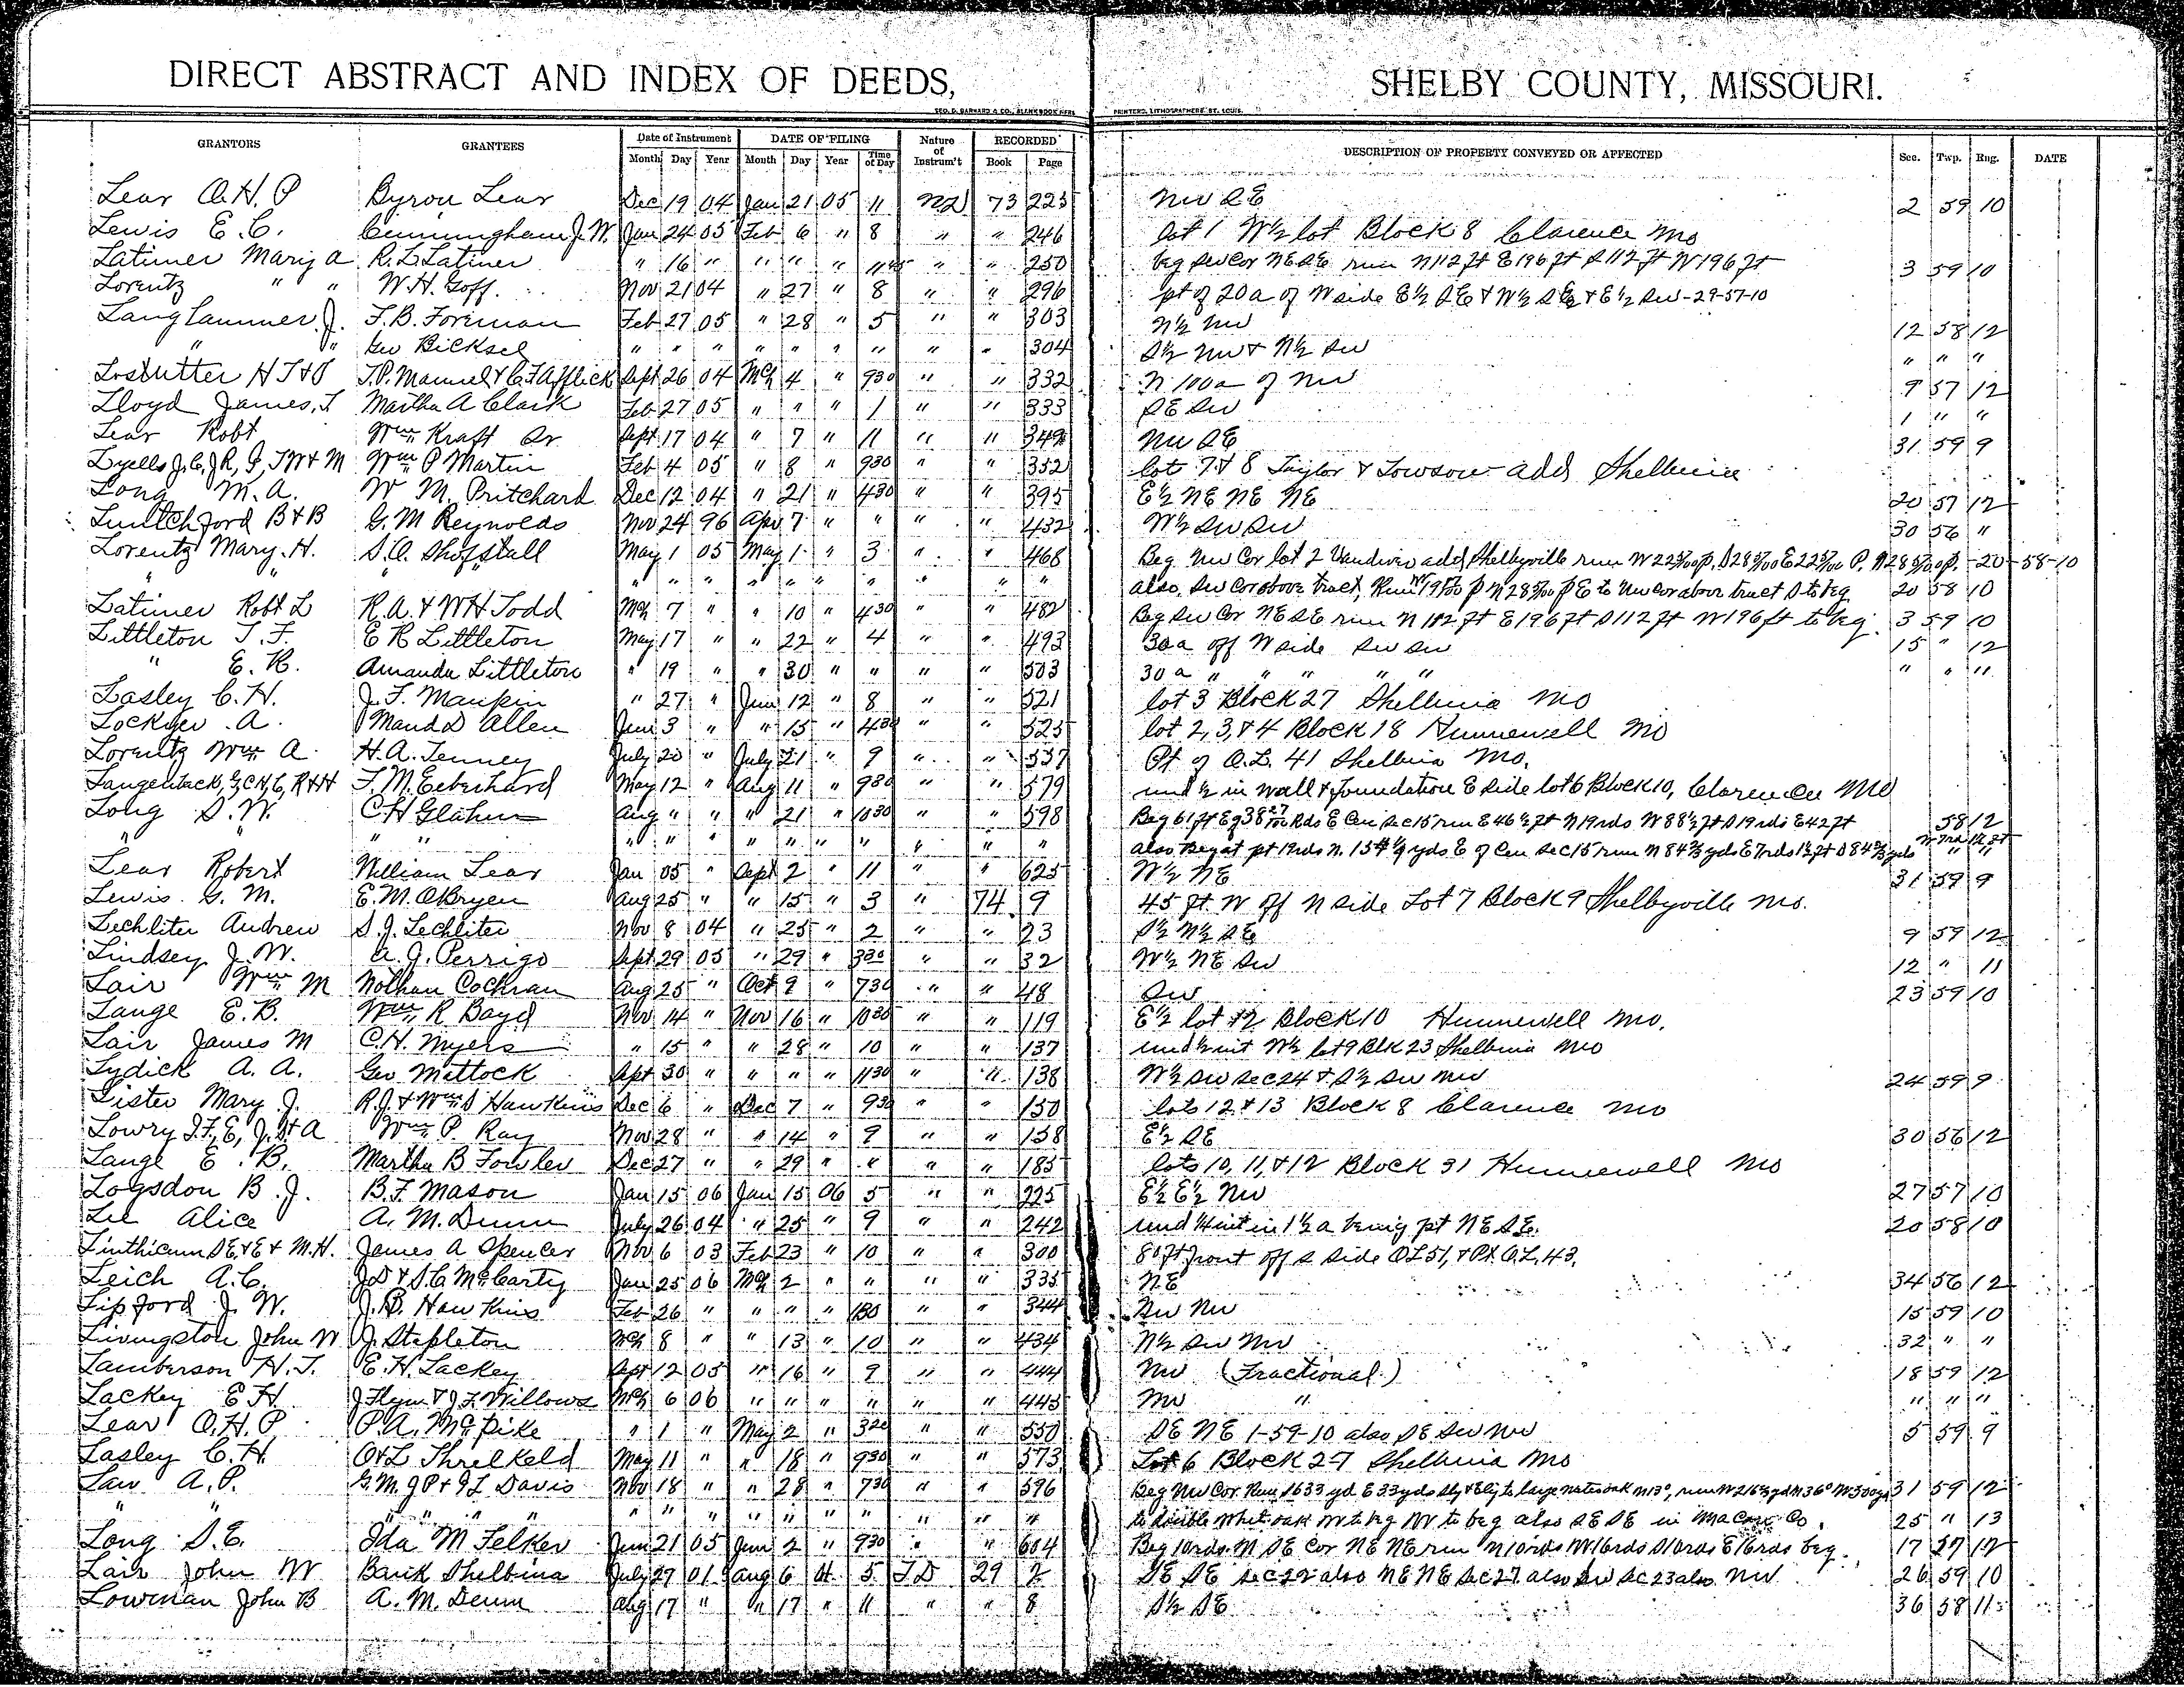 DIRECT ABSTRACT AND INDEX OF DEEDS, SHELBY COUNTY, MISSOURI.
GEO. D. BARNARD & CO., BLANK BOOK MFRS PRINTERS, LITHOGRAPHERS ST. LOUIS.
GRANTORS GRANTEES Date of Instrument DATE OF FILING Nature of Instrum't RECORDED DESCRIPTION OF PROPERTY CONVEYED OR AFFECTED Sec. Twp. Rng. DATE
Month Day Year Month Day Year Time of Day Book Page
Lear O.H.P Byron Lear Dec 19 04 Jan 21 05 11 73 225 NW SE 2 59 10
Lewis E.C. Cunningham J.W. Jan 24 05 Feb 6 " 8 " " 246 lot 1 W½ lot Block 8 Clarence Mo
Latimer Mary A R.L. Latimer " 16 " " " " 1145 " " 250 beg SW Cor NE SE run N 112 ft E 196 ft S 112 ft W 196 ft 3 59 10
Lorentz " " W.H. Goff. Nov 21 04 " 27 " 8 " " 296 pt of 20a of W side E½ SE & W½ SE & E½ SW-29-57-10
Langhammer J. F.B. Foreman Feb 27 05 " 28 " 5 " " 303 N½ NW 12 58 12
" " Geo Bicksel " " " " " " " " " 304 S½ NW & N½ SW " " "
Lostutter H T & J T.P. Manuel & C.F. Afflick Sept 26 04 Mch 4 " 930 " " 332 N 100a of NW 9 57 12
Lloyd James, T Martha A Clark Feb 27 05 " " " 1 " " 333 SE SW 1 " "
Lear Robt Wm Kraft Sr Sept 17 04 " 7 " 11 " " 349 NW SE 31 59 9
Lyells J.C, J R, G, T W & M Wm P Martin Feb 4 05 " 8 " 930 " " 352 lot 7 & 8 Taylor & Towson add Shelbina
Long M.A. W M. Pritchard Dec 12 04 " 21 " 430 " " 395 E½ NE NE NE 20 57 12
B & B G. M Reynolds Nov 24 96 Apr 7 " " " " 432 W½ SW SW 30 56 "
Lorentz Mary. H. S.O. Shofstall May 1 05 May 1 " 3 " " 468 Beg NW Cor lot 2 Vandiver add Shelbyville run -20-58-10
" " " " " " " " " " " " " also. SW Cor above tract, Run E to NW cor above tract S to beg 20 58 10
Latimer Robt L R.A. & W H Todd Mch 7 " " 10 " 430 " " 482 Beg SW Cor NE SE run N 112 ft E 196 ft S 112 ft W 196 ft to beg. 3 59 10
Littleton T. F. E R Littleton May 17 " " 22 " 4 " " 493 30a off W side SW SW 15 " 12
" E. R. Amanda Littleton " 19 " " 30 " " " " 503 30 a " " " " " " "
Lasley C.H. J.T. Maupin " 27 " Jun 12 " 8 " " 521 lot 3 Block 27 Shelbina Mo
Lockyer A. Maud D Allen Jun 3 " " 15 " 430 " " 525 lot 2, 3, & 4 Block 18 Hunnewell Mo
Lorentz Wm A H.A. Tenney July 20 " July 21 " 9 " " 557 Pt of O.L. 41 Shelbina Mo.
Langenback, G, C H, C, R & H F. M. Eeberhard May 12 " Aug 11 " 930 " " 579 und ½ in wall & foundation E side lot 6 Block 10, Clarence Mo
Long S. W. C H Glahn Aug " " " 21 " 1030 " " 598 Rds E Cen Sec 15 run E 46½ ft N 19 rds W 88½ ft S 19 rds E 42 ft 58 12
" " " " " " " " " " " " " also beg at pt 19 rds N. yds E of Cen Sec 15 run N 84⅔ yds
Lear Robert William Lear Jan 05 " Sept 2 " 11 " " 625 W½ NE 31 59 9
Lewis G. M. E.M. O'Bryen Aug 25 " " 15 " 3 " 74 9 45 ft. W off N side Lot 7 Block 9 Shelbyville Mo.
Lechliter Andrew S.J. Lechliter Nov 8 04 " 25 " 2 " " 23 S½ N½ SE 9 59 12
Lindsey J.W. A.J. Perrigo Sept 29 05 " 29 " 330 " " 32 W½ NE SW 12 " 11
Lair Wm M Nothan Cochran Aug 25 " Oct 9 " 730 " " 48 SW 23 59 10
Lange E.B. Wm R Boyd Nov 14 " Nov 16 " 1030 " " 119 E½ lot 2 Block 10 Hunnewell Mo.
Lair James M C.H. Myers " 15 " " 28 " 10 " " 137 und ½ int W½ lot 9 Blk 23 Shelbina Mo
Lydick A. A. Geo Mattock Sept 30 " " " " 1130 " " 138 W½ SW Sec 24 & S½ SW NW 24 59 9
Lister Mary J. R.J. & Wm S Hawkins Dec 6 " Dec 7 " 930 " " 150 lots 12 & 13 Block 8 Clarence Mo
Lowry J.F, E, J. S & A Wm P. Ray Nov 28 " " 14 " 9 " " 158 E½ SE 30 56 12
Lange E. B. Martha B Fowler Dec 27 " " 29 " " " " 185 lots 10, 11, & 12 Block 31 Hunnewell Mo
Logsdon B.J. B.F Mason Jan 15 06 Jan 15 06 5 " " 225 E½ E½ NW 27 57 10
Lee Alice A. M. Dunn July 26 04 " 25 " 9 " " 242 und ¼ int in 1½ a being pt NE SE. 20 58 10
Linthicum S E, & E & M.H. James A Spencer Nov 6 03 Feb 23 " 10 " " 300 80 ft front off S side OL 51, & Pt O.L. 43.
Leich A.C. J D & S.C McCarty Jan 25 06 Mch 2 " " " " 335 NE 34 56 12
Lipford J. W. J.B. Hawkins Feb 26 " " " " 130 " " 344 SW NW 15 59 10
Livingston John W J. Stapleton Mch 8 " " 13 " 10 " " 434 N½ SW NW 32 " "
Lamberson H.T. E.H. Lackey Sept 12 05 " 16 " 9 " " 444 NW (Fractional) 18 59 12
Lackey E H. J Flynn & J.F. Willows Mch 6 06 " " " " " " 445 NW " " " "
Lear O.H.P P.A. McPike " 1 " May 2 " 320 " " 550 SE NE 1-59-10 also SE SW NW 5 59 9
Lasley C.H. O & L Threlkeld May 11 " " 18 " 930 " " 573 Lot 6 Block 27 Shelbina Mo
Law A.P. G.M, J P & J L Davis Nov 18 " " 28 " 730 " " 596 Beg NW Cor. Run 1633 yd E 33 yds 31 59 12
" " " " " " " " " " " " " to double white oak to beg also SE SE in Macon Co. 25 " 13
Long S.E. Ida M Felker Jun 21 05 Jun 2 " 930 " " 604 Beg 10 rds N SE Cor NE NE run N 10 rds W 16 rds S 10 rds E 16 rds beg. 17 57 12
Lair John W Bank Shelbina July 27 01 Aug 6 01 5 TD 29 2 SE SE Sec 22 also NE NE Sec 27 also SW Sec 23 also NW 26 59 10
Lowman John B A. M. Dunn Aug 17 " " 17 " 11 " " 8 S½ SE 36 58 11